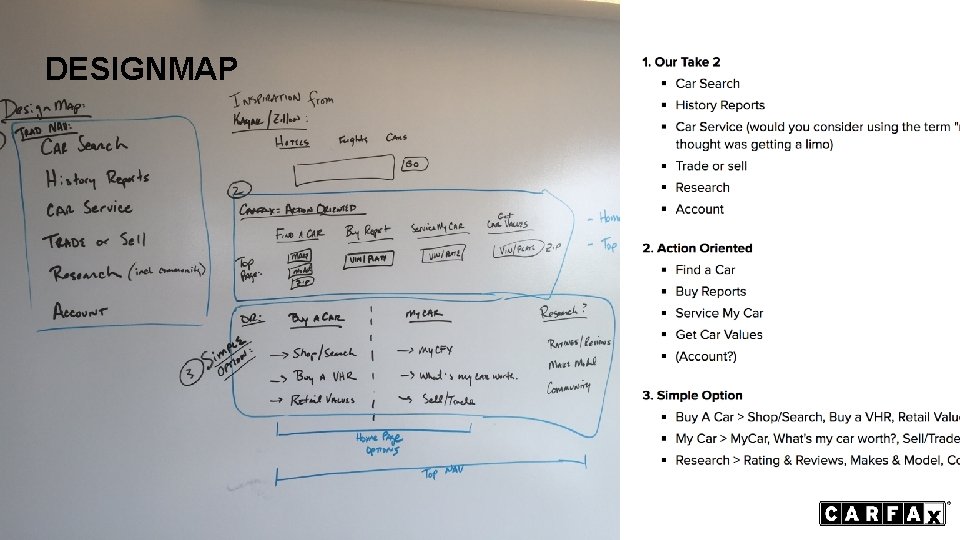 DESIGNMAP
Design Map:
TRAD NAV:
CAR Search
History Reports
CAR Service
TRADE or Sell
Research (incl community)
Account
INSPIRATION from
Kayak/Zillow:
Hotels Flights Cars
GO
2
CARFAX = ACTION ORIENTED
FIND A CAR Buy Report Service My CAR Get CAR VALUES
TOP PAGE:
MAKE
VIN/PLATE VIN/PLATE VIN/PLATE ZIP
MODEL
ZIP
- Home
- Top
3 SIMPLE OPTION:
OR: Buy A CAR My CAR Research?
→ Shop/Search → MyCFX RATINGS/REVIEWS
→ Buy A VHR → What's my car worth. Make Model
→ Retail Values → Sell/Trade Community
Home Page Options
Top NAV
1. Our Take 2
▪ Car Search
▪ History Reports
▪ Car Service (would you consider using the term "
thought was getting a limo)
▪ Trade or sell
▪ Research
▪ Account
2. Action Oriented
▪ Find a Car
▪ Buy Reports
▪ Service My Car
▪ Get Car Values
▪ (Account?)
3. Simple Option
▪ Buy A Car > Shop/Search, Buy a VHR, Retail Valu
▪ My Car > MyCar, What's my car worth?, Sell/Trade
▪ Research > Rating & Reviews, Makes & Model, Co
CARFAX®